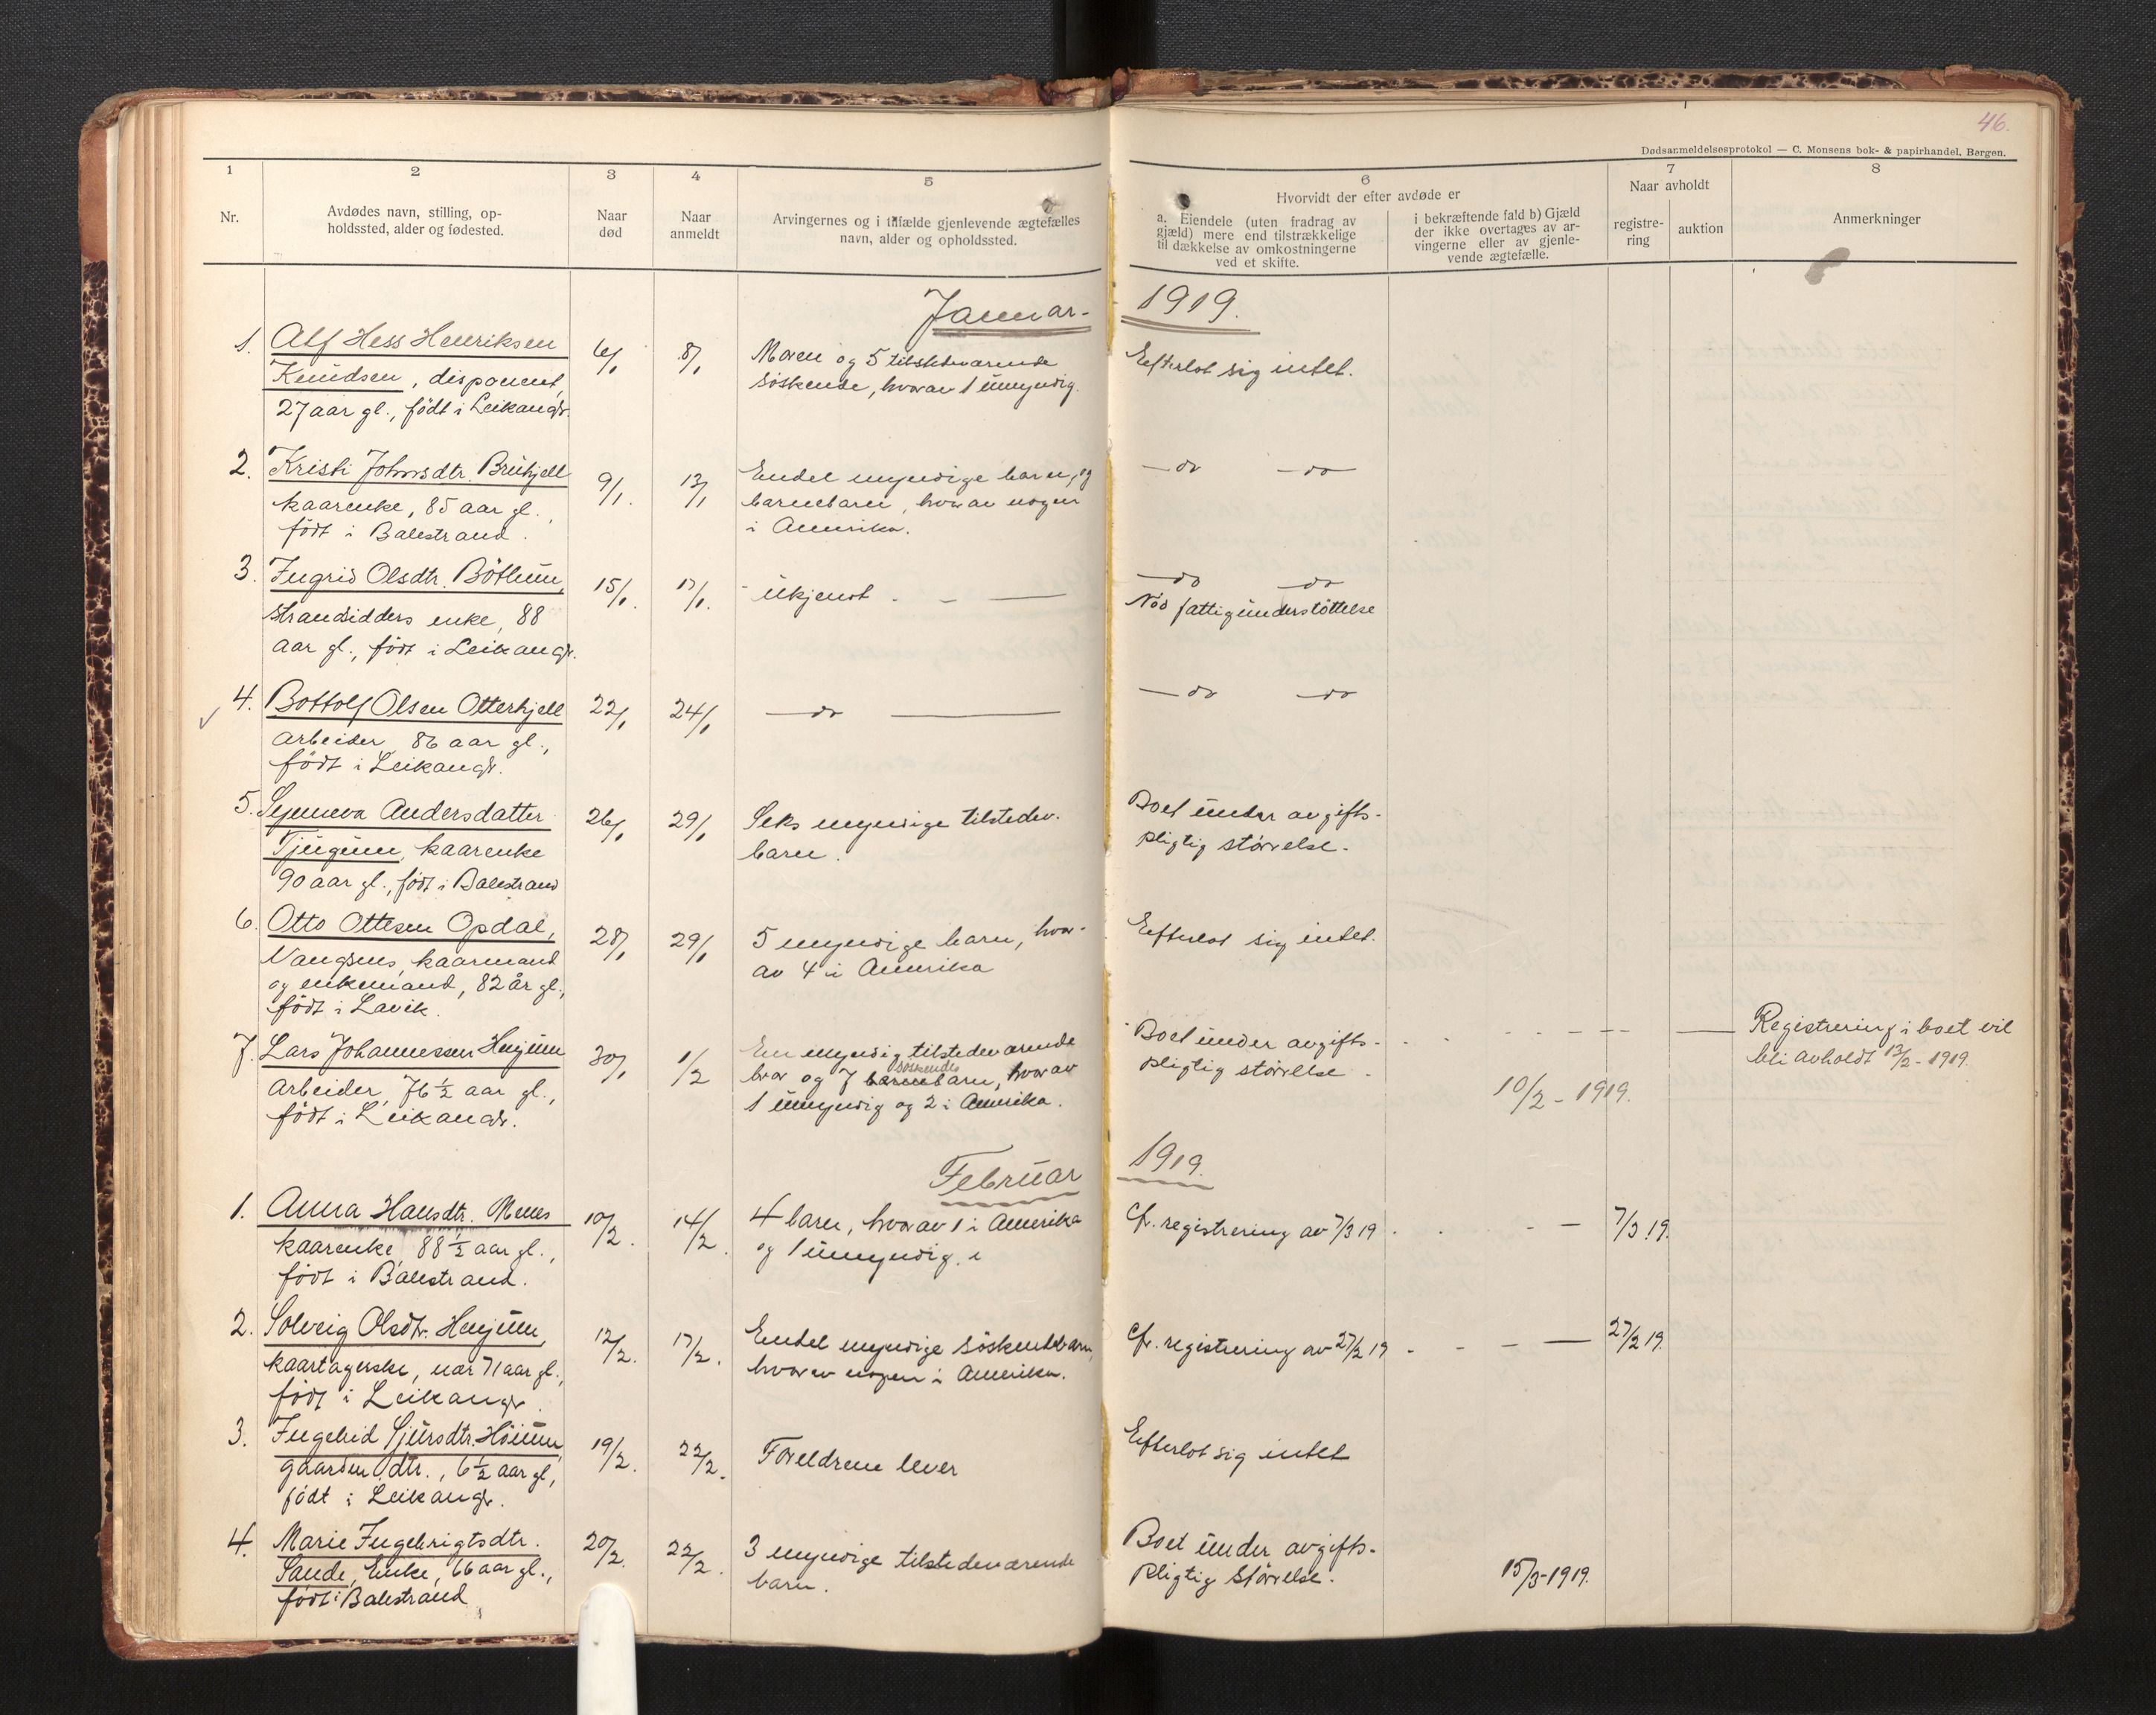 46.
Dødsanmeldelsesprotokol — C. Monsens bok- & papirhandel, Bergen.
1
2
3
4
5
6
7
8
Nr.
Avdødes navn, stilling, op-
holdssted, alder og fødested.
Naar
død
Naar
anmeldt
Arvingernes og i tilfælde gjenlevende ægtefælles
navn, alder og opholdssted.
Hvorvidt der efter avdøde er
a. Eiendele (uten fradrag av
gjæld) mere end tilstrækkelige
til dækkelse av omkostningerne
ved et skifte.
i bekræftende fald b) Gjæld
der ikke overtages av ar-
vingerne eller av gjenle-
vende ægtefælle.
Naar avholdt
registre-
ring
auktion
Anmerkninger
Januar- 1919.
1. Alf Hess Henriksen
Knudsen, disponent,
27 aar gl., født i Leikangr.
6/1
8/1
Moren og 5 tilstedeværende
søskende, hvorav 1 umyndig.
Efterlot sig intet.
2. Kristi Johnsdtr.
kaarenke, 85 aar gl.,
født i Balestrand.
9/1.
13/1
Endel myndige barn, og
barnebarn, hvorav nogen
i Amerika.
— do — do —
3. Ingrid Olsdtr. Böthun,
strandsidders enke, 88
aar gl., født i Leikangr.
15/1.
17/1.
Ukjendt . - —
— do — do —
Nöd fattigunderstöttelse
4. Bottolf Olsen Otterhjell
arbeider, 86 aar gl.,
født i Leikangr.
22/1
24/1
— do —
— do — do
5. Synneva Andersdatter
Tjugum, kaarenke
90 aar gl., født i Balestrand
26/1
29/1
Seks myndige tilstedev.
barn.
Boet under avgifts-
pligtig störrelse.
6. Otto Ottesen Opdal,
Vangsnes, kaarmand
og enkemand, 82 år gl.,
født i Lavik.
28/1
29/1
5 myndige barn, hvor-
av 4 i Amerika
Efterlot sig intet.
7. Lars Johannessen Henjum
Arbeider, 76 ½ aar gl.,
født i Leikangr.
30/1
1/2
En myndig tilstedeværende
søskende
bror og 7 barnebarn, hvorav
1 umyndig og 2 i Amerika.
Boet under avgifts-
pligtig störrelse.
10/2 - 1919.
Registrering i boet vil
bli avholdt 13/2 - 1919.
Februar 1919.
1. Anna Hansdtr. Menes
kaarenke 88 ½ aar gl.,
født i Balestrand.
10/2.
14/2.
4 barn, hvorav 1 i Amerika
og 1 umyndig.
Cfr. registrering av 7/3 19
7/3 19.
2. Solveig Olsdtr. Henjum,
kaartagerske, nær 71 aar gl.,
født i Leikangr.
12/2.
17/2.
Endel myndige søskendebarn,
hvorav nogen i Amerika.
Cfr. registrering av 27/2 19
27/2 19.
3. Ingebrid Sjursdtr.
gaardm. dtr., 6 ½ aar gl.,
født i Leikangr.
19/2.
22/2.
Foreldrene lever
Efterlot sig intet
4. Marie Ingebrigtsdtr.
Sande, Enke, 66 aar gl.,
født i Balestrand
20/2.
22/2.
3 myndige tilstedeværende
barn.
Boet under avgifts-
pligtig störrelse.
15/3-1919.